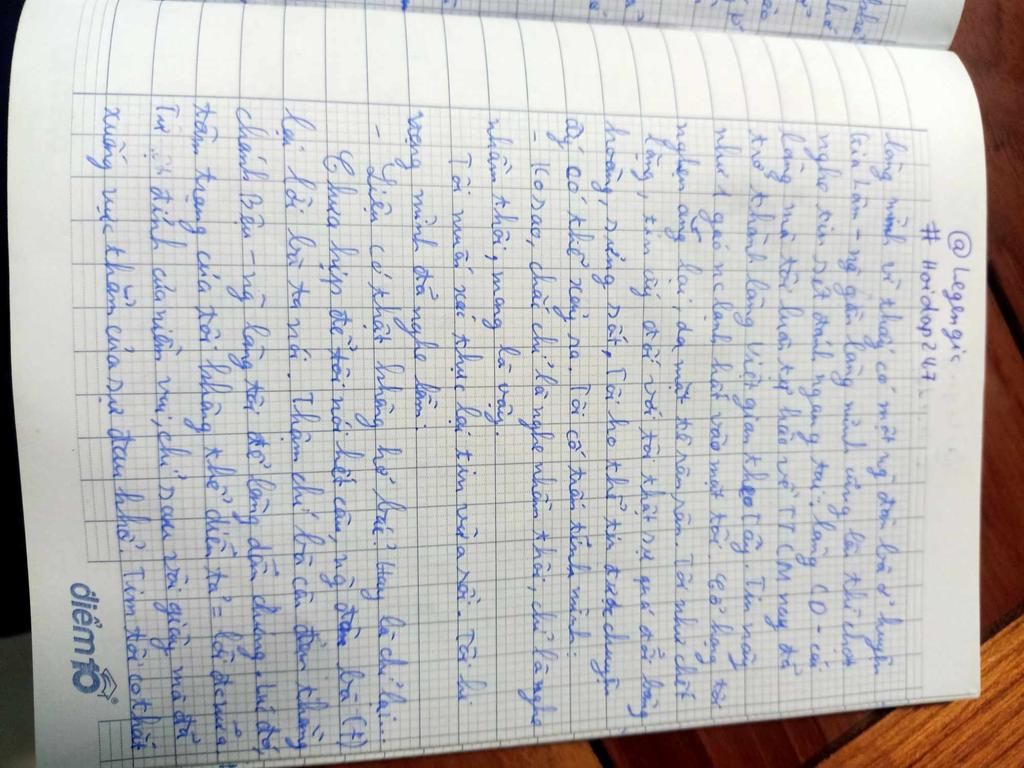 @Legengic
# Hoidap247
làng mình vì thấy có một ng đàn bà ở huyện
Gia Lâm - ng gần làng mình cũng lên thì chợt
nghe tin sét đánh ngang tai: làng CD - cái
làng mà tôi luôn tự hào về TTCM nay đã
trở thành làng Việt gian theo Tây. Tin này
như 1 gáo nc lạnh hắt vào mặt tôi. Cổ họng tôi
nghẹn ắng lại, da mặt tê rân rân. Tôi như chết
lặng, tim ấy đối với tôi thật sự quá đỗi bàng
hoàng, sững sốt, Tôi ko thể tin chuyện
ấy có thể xảy ra. Tôi cố trấn tĩnh mình:
- Ko sao, chắc chỉ là nghe nhầm thôi, chỉ là nghe
nhầm thôi, mong là vậy.
Tôi muốn xác thực lại tin vừa rồi. Tôi hi
vọng mình đã nghe lầm:
- Liệu có thật không hở bác? Hay là chỉ lại...
Chưa kịp để tôi nói hết câu, ng đàn bà (t)
lại lời bà ta nói. Thậm chí bà còn đến thằng
chánh Bệu - ng làng tôi để làng dẫn chứng. Lúc đó
tâm trạng của tôi không thể diễn tả = lời đc nữa
Từ đỉnh của niềm vui, chỉ sau vài giây mà đã
xuống vực thẳm của sự đau khổ. Tim tôi co thắt
điểm 10